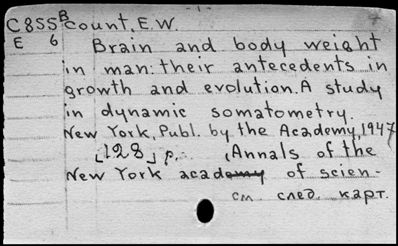 C855 Bcount, E.W.
E 6 Brain and body weight
in man: their antecedents in
growth and evolution. A study
in dynamic somatometry.
New York, Publ. by the Academy, 1947
[128] p. (Annals of the
New York academy of scien-
см. след. карт.